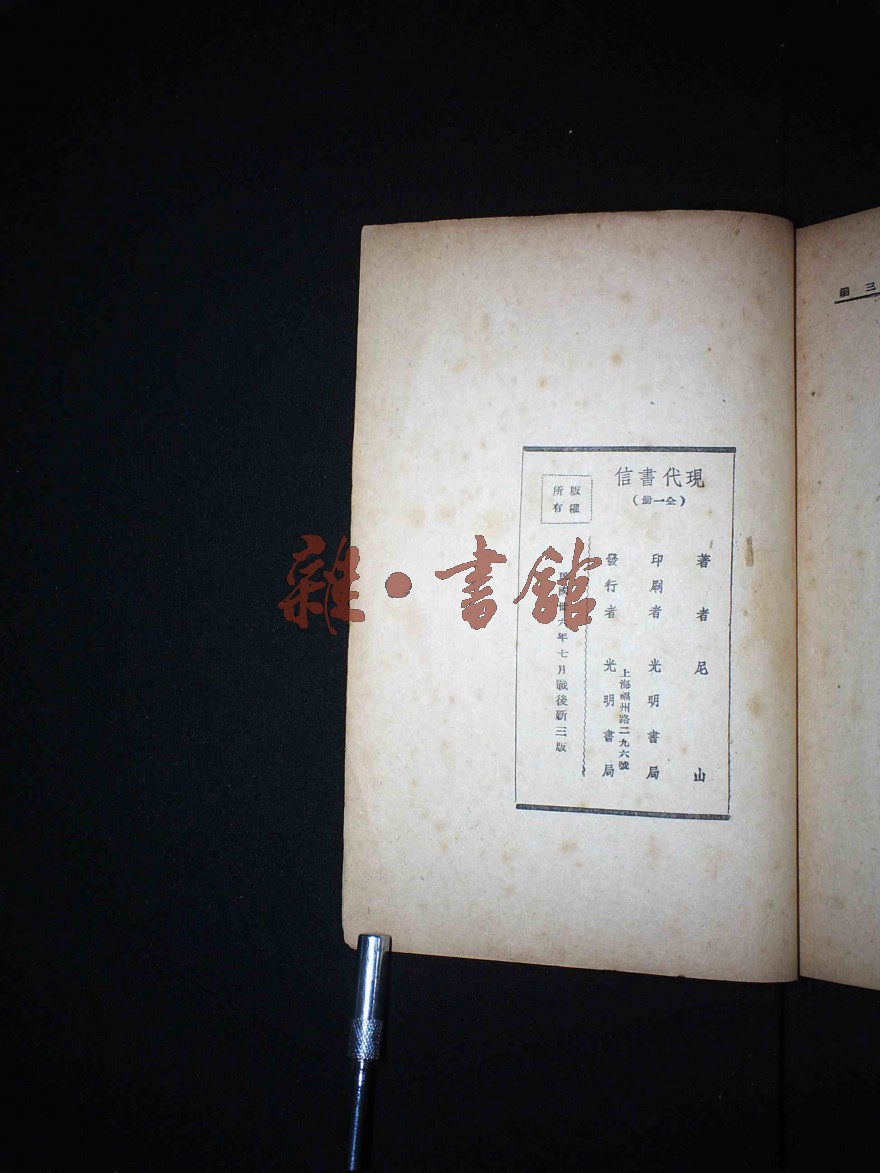 現代書信
(全一冊)
著者尼山
印刷者光明書局
上海福州路二九六號
發行者光明書局
版權
所有
民國卅六年七月戰後新三版
三編
雜·書館